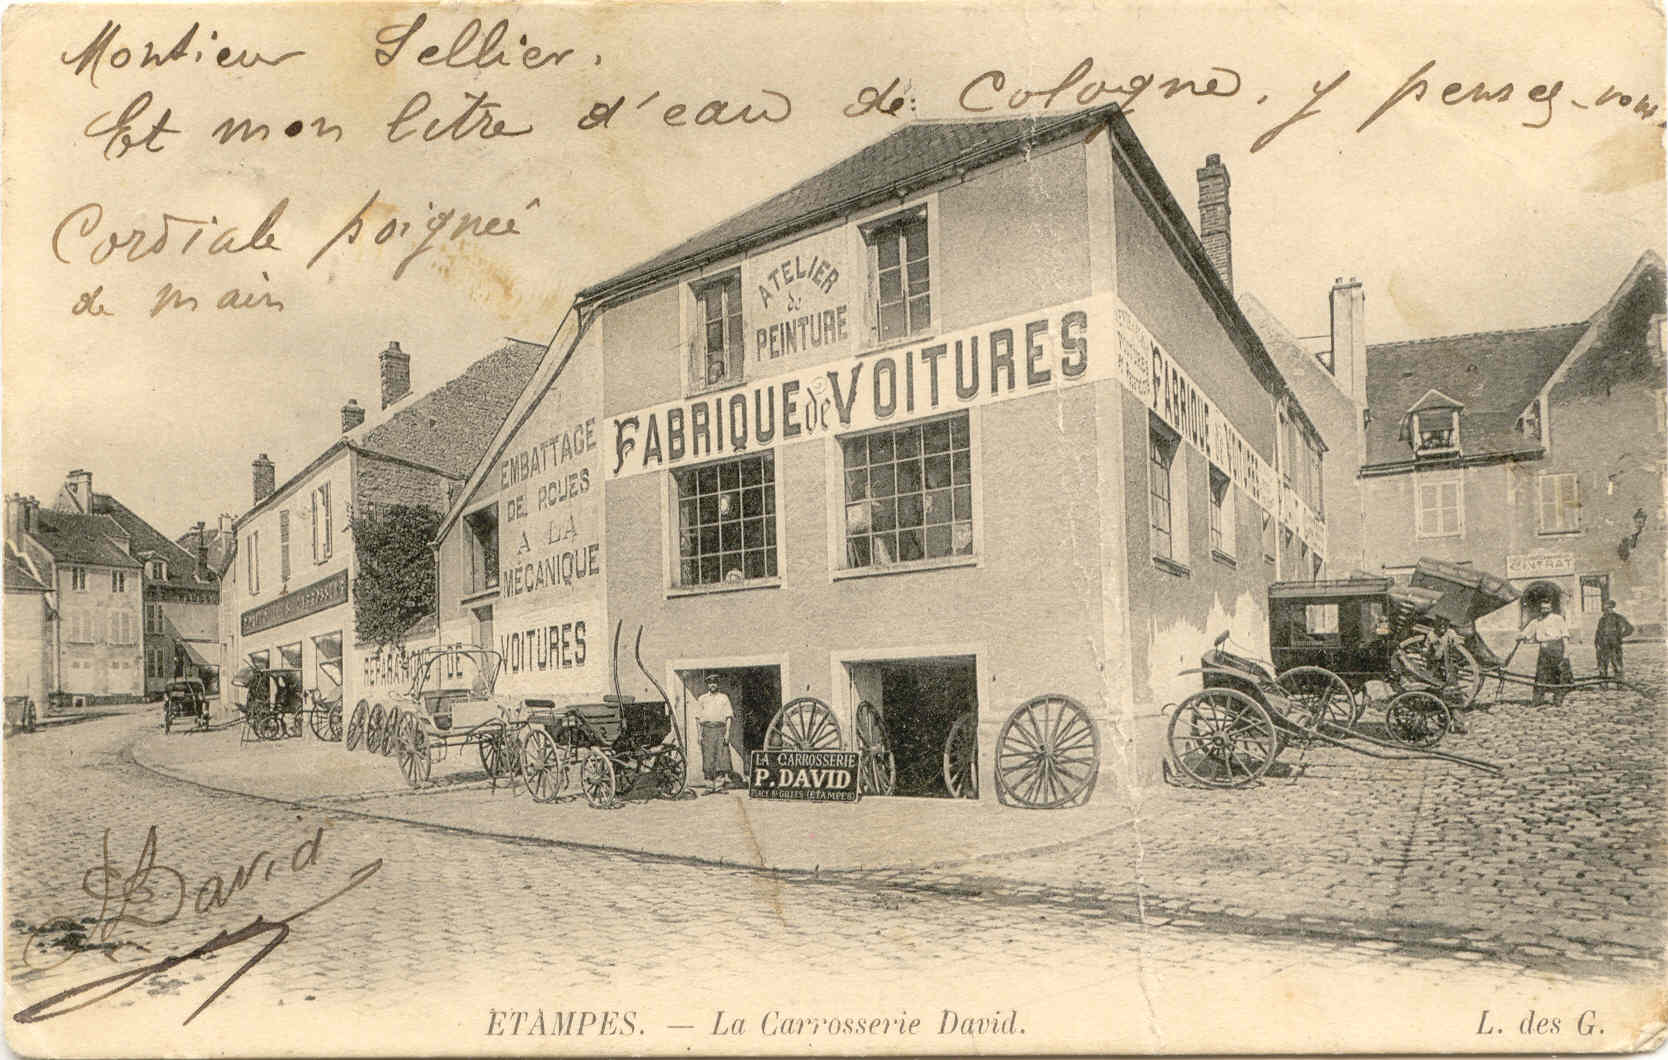 Monsieur Sellier.
Et mon litre d'eau de Cologne, y pensez-vous.
Cordiale poignée
de main
ATELIER
de
PEINTURE
FABRIQUE de VOITURES
FABRIQUE de VOITURES
EMBATTAGE
DE ROUES
A LA
MÉCANIQUE
VOITURES
RÉPARATION DE
LA CARROSSERIE
P. DAVID
PLACE St GILLES (ETAMPES)
CENTRAL
David
ETAMPES. — La Carrosserie David.
L. des G.